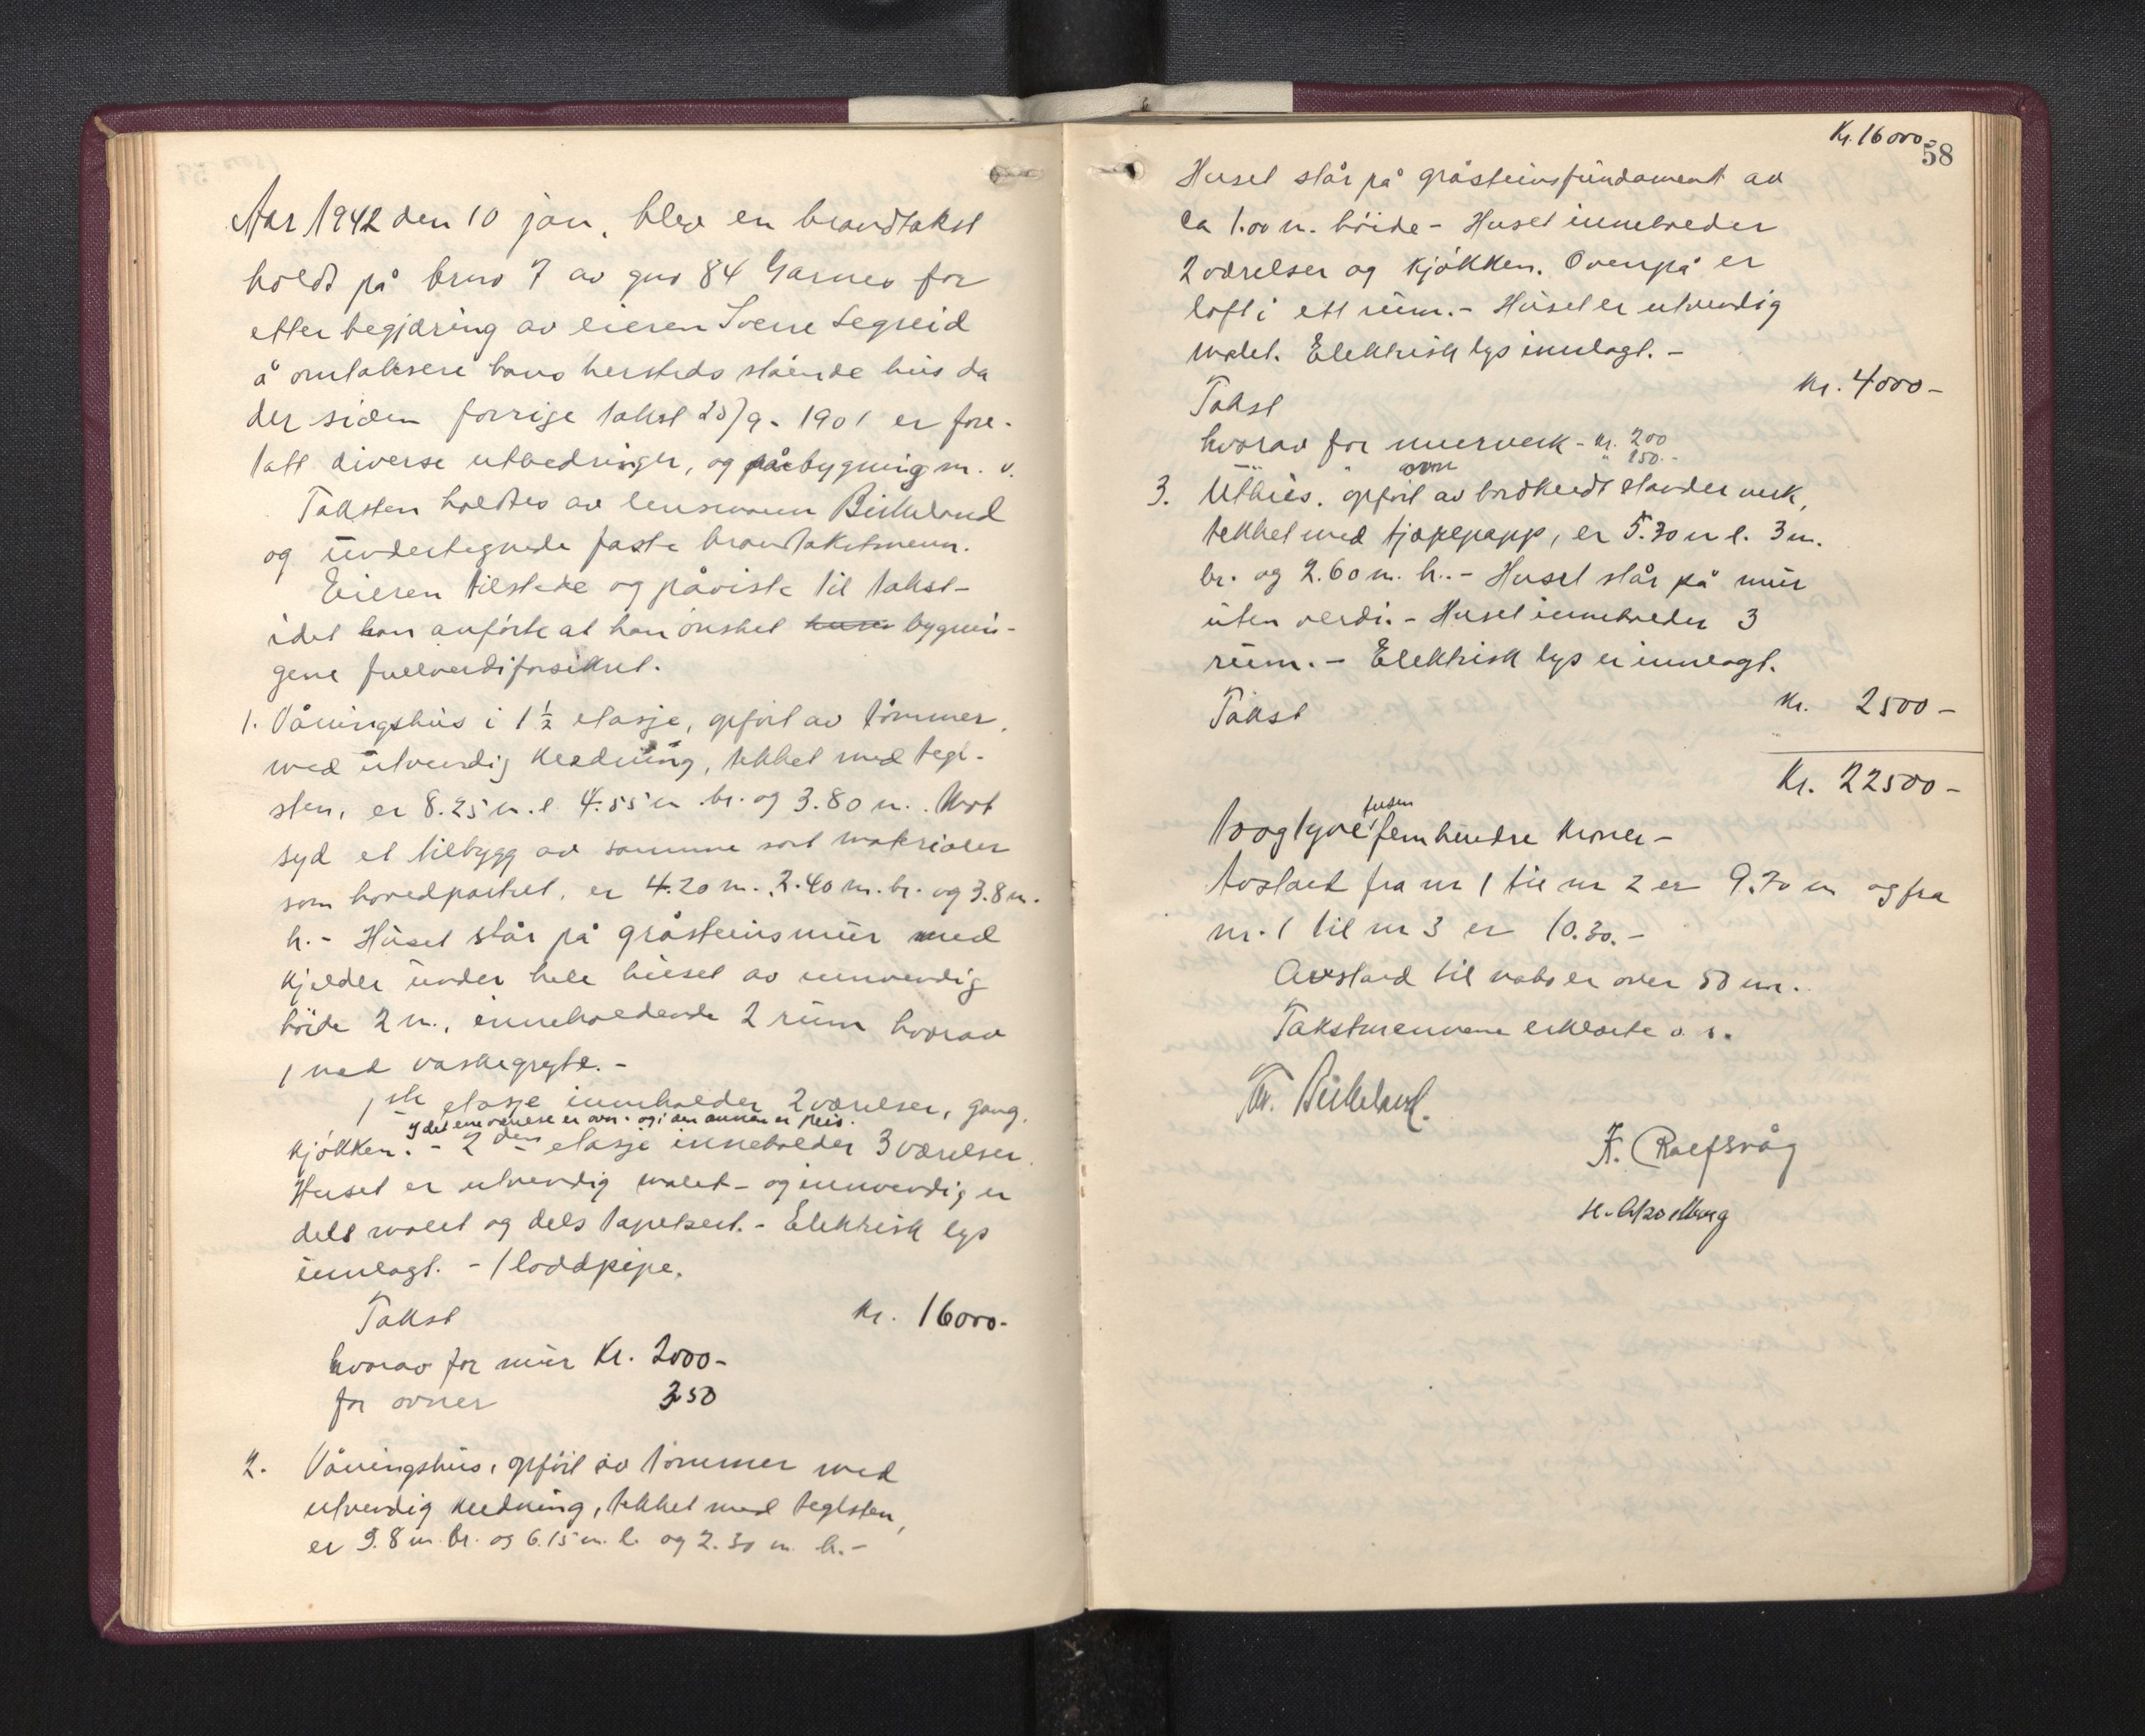 Aar 1942 den 10 jan. blev en brandtakst
holdt på brno 7 av gno 84 Garnes for
etter begjæring av eieren Sverre Segreid
å omtaksere hans hersteds stående hus da
der siden forrige takst 25/9. 1901 er fore-
tatt diverse utbedringer, og påbygning m. v.
Taksten holdtes av lensmann Birkeland
og undertegnede faste brandtakstmenn.
Eieren tilstede og påviste til takst-
idet han anförte at han önsket huse bygnin-
gene fullverdiforsikret.
1. Våningshus i 1 1/2 etasje, opfört av tömmer,
med utvendig kledning, tekket med tegl-
sten, er 8.25 m. l. 4.55 m. br. og 3.80 m. Mot
syd et tilbygg av samme sort materialer
som hovedpartiet, er 4.20 m. 2.40 m. br. og 3.8 m.
h. - Huset står på gråsteinsmur med
kjelder under hele huset av innvendig
höide 2 m., inneholdende 2 rum hvorav
1 med vaskegryte. -
1ste etasje inneholder 2 værelser, gang,
I det ene værelse er ovn. og i den annen er peis.
kjökken. - 2den etasje inneholder 3 værelser.
Huset er utvendig malet - og innvendig er
dels malet og dels tapetsert. - Elektrisk lys
innlagt. - 1 loddpipe.
Takst kr. 16000.-
hvorav for mur Kr. 2000-
for ovner 350
2. Våningshus, opfört av tömmer med
utvendig kledning, tekket med teglsten,
er 9.8 m. br. og 6.15 m. l. og 2.30 m. h. -
Kr. 16000-
58
Huset står på gråsteinsfundament av
ca 1.00 m. höide - Huset inneholder
2 værelser og kjökken. Ovenpå er
loft i ett rum. - Huset er utvendig
malet. Elektrisk lys innlagt. -
Takst kr. 4000-
hvorav for murverk - kr. 200
" " ovn " 150.-
3. Uthus. opfört av bordkledt stenderverk,
tekket med tjærepapp, er 5.30 m l. 3 m.
br. og 2.60 m. h.. - Huset står på mur
uten verdi. - Huset inneholder 3
rum. - Elektrisk lys er innlagt.
Takst kr. 2500-
Kr. 22500-
tusen
toogtyve femhundre kroner -
Avstand fra nr 1 til nr 2 er 9.70 m og fra
nr. 1 til nr 3 er 10.30. -
Avstand til nabo er over 50 m.
Takstmennene erklærte o. s.
Birkeland.
K. Roefsvåg